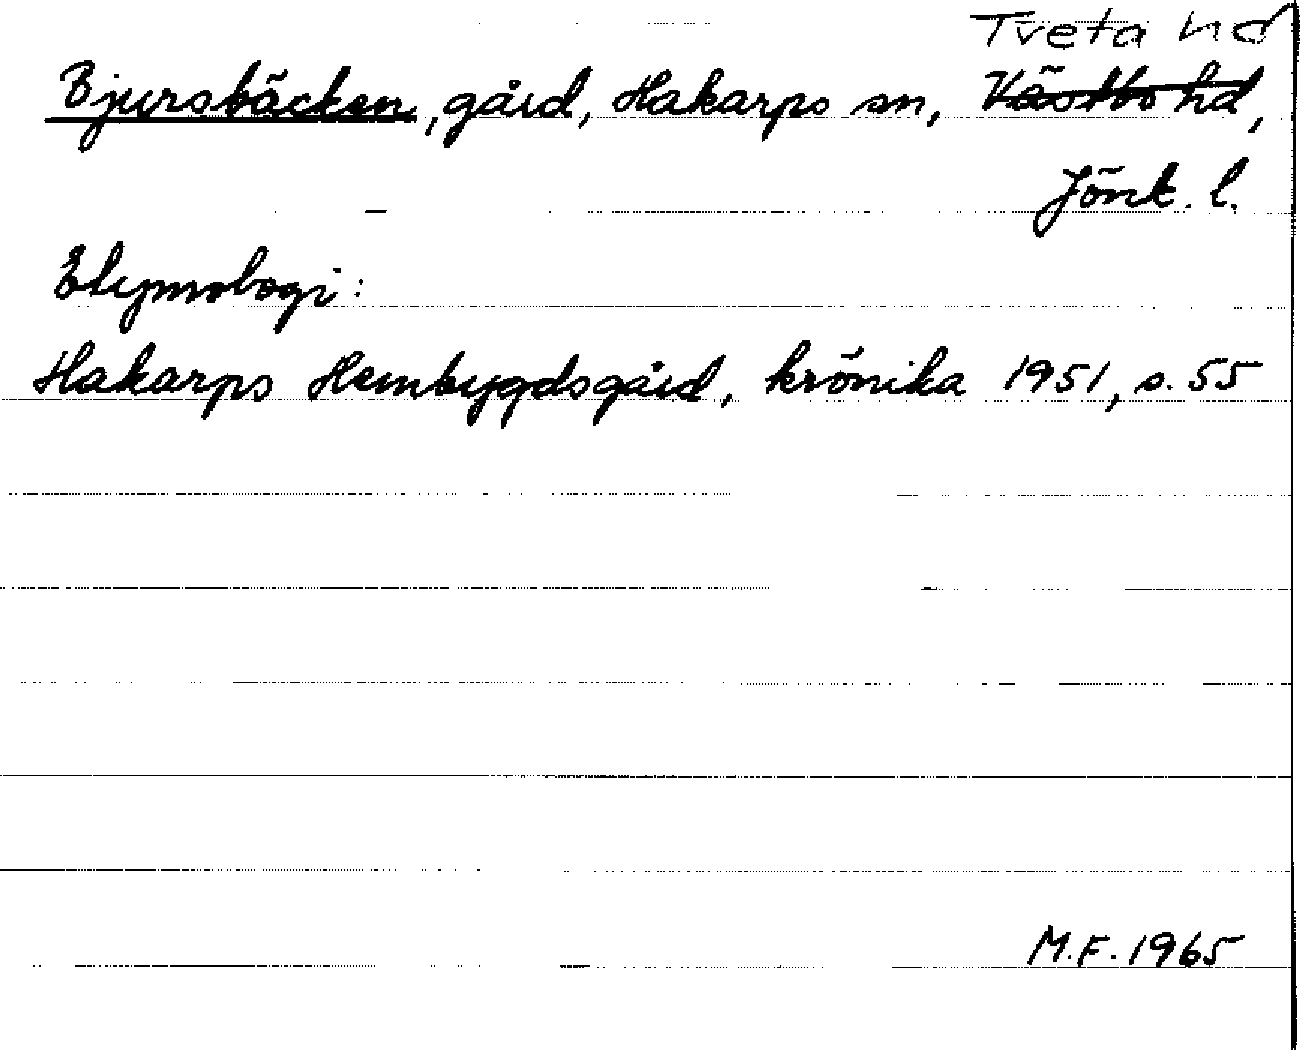 Tveta hd
Bjursbäcken, gård, Hakarps sn, Västbo hd,
Jönk. l.
Etymologi:
Hakarps Hembygdsgård, krönika 1951, s. 55
M.F. 1965